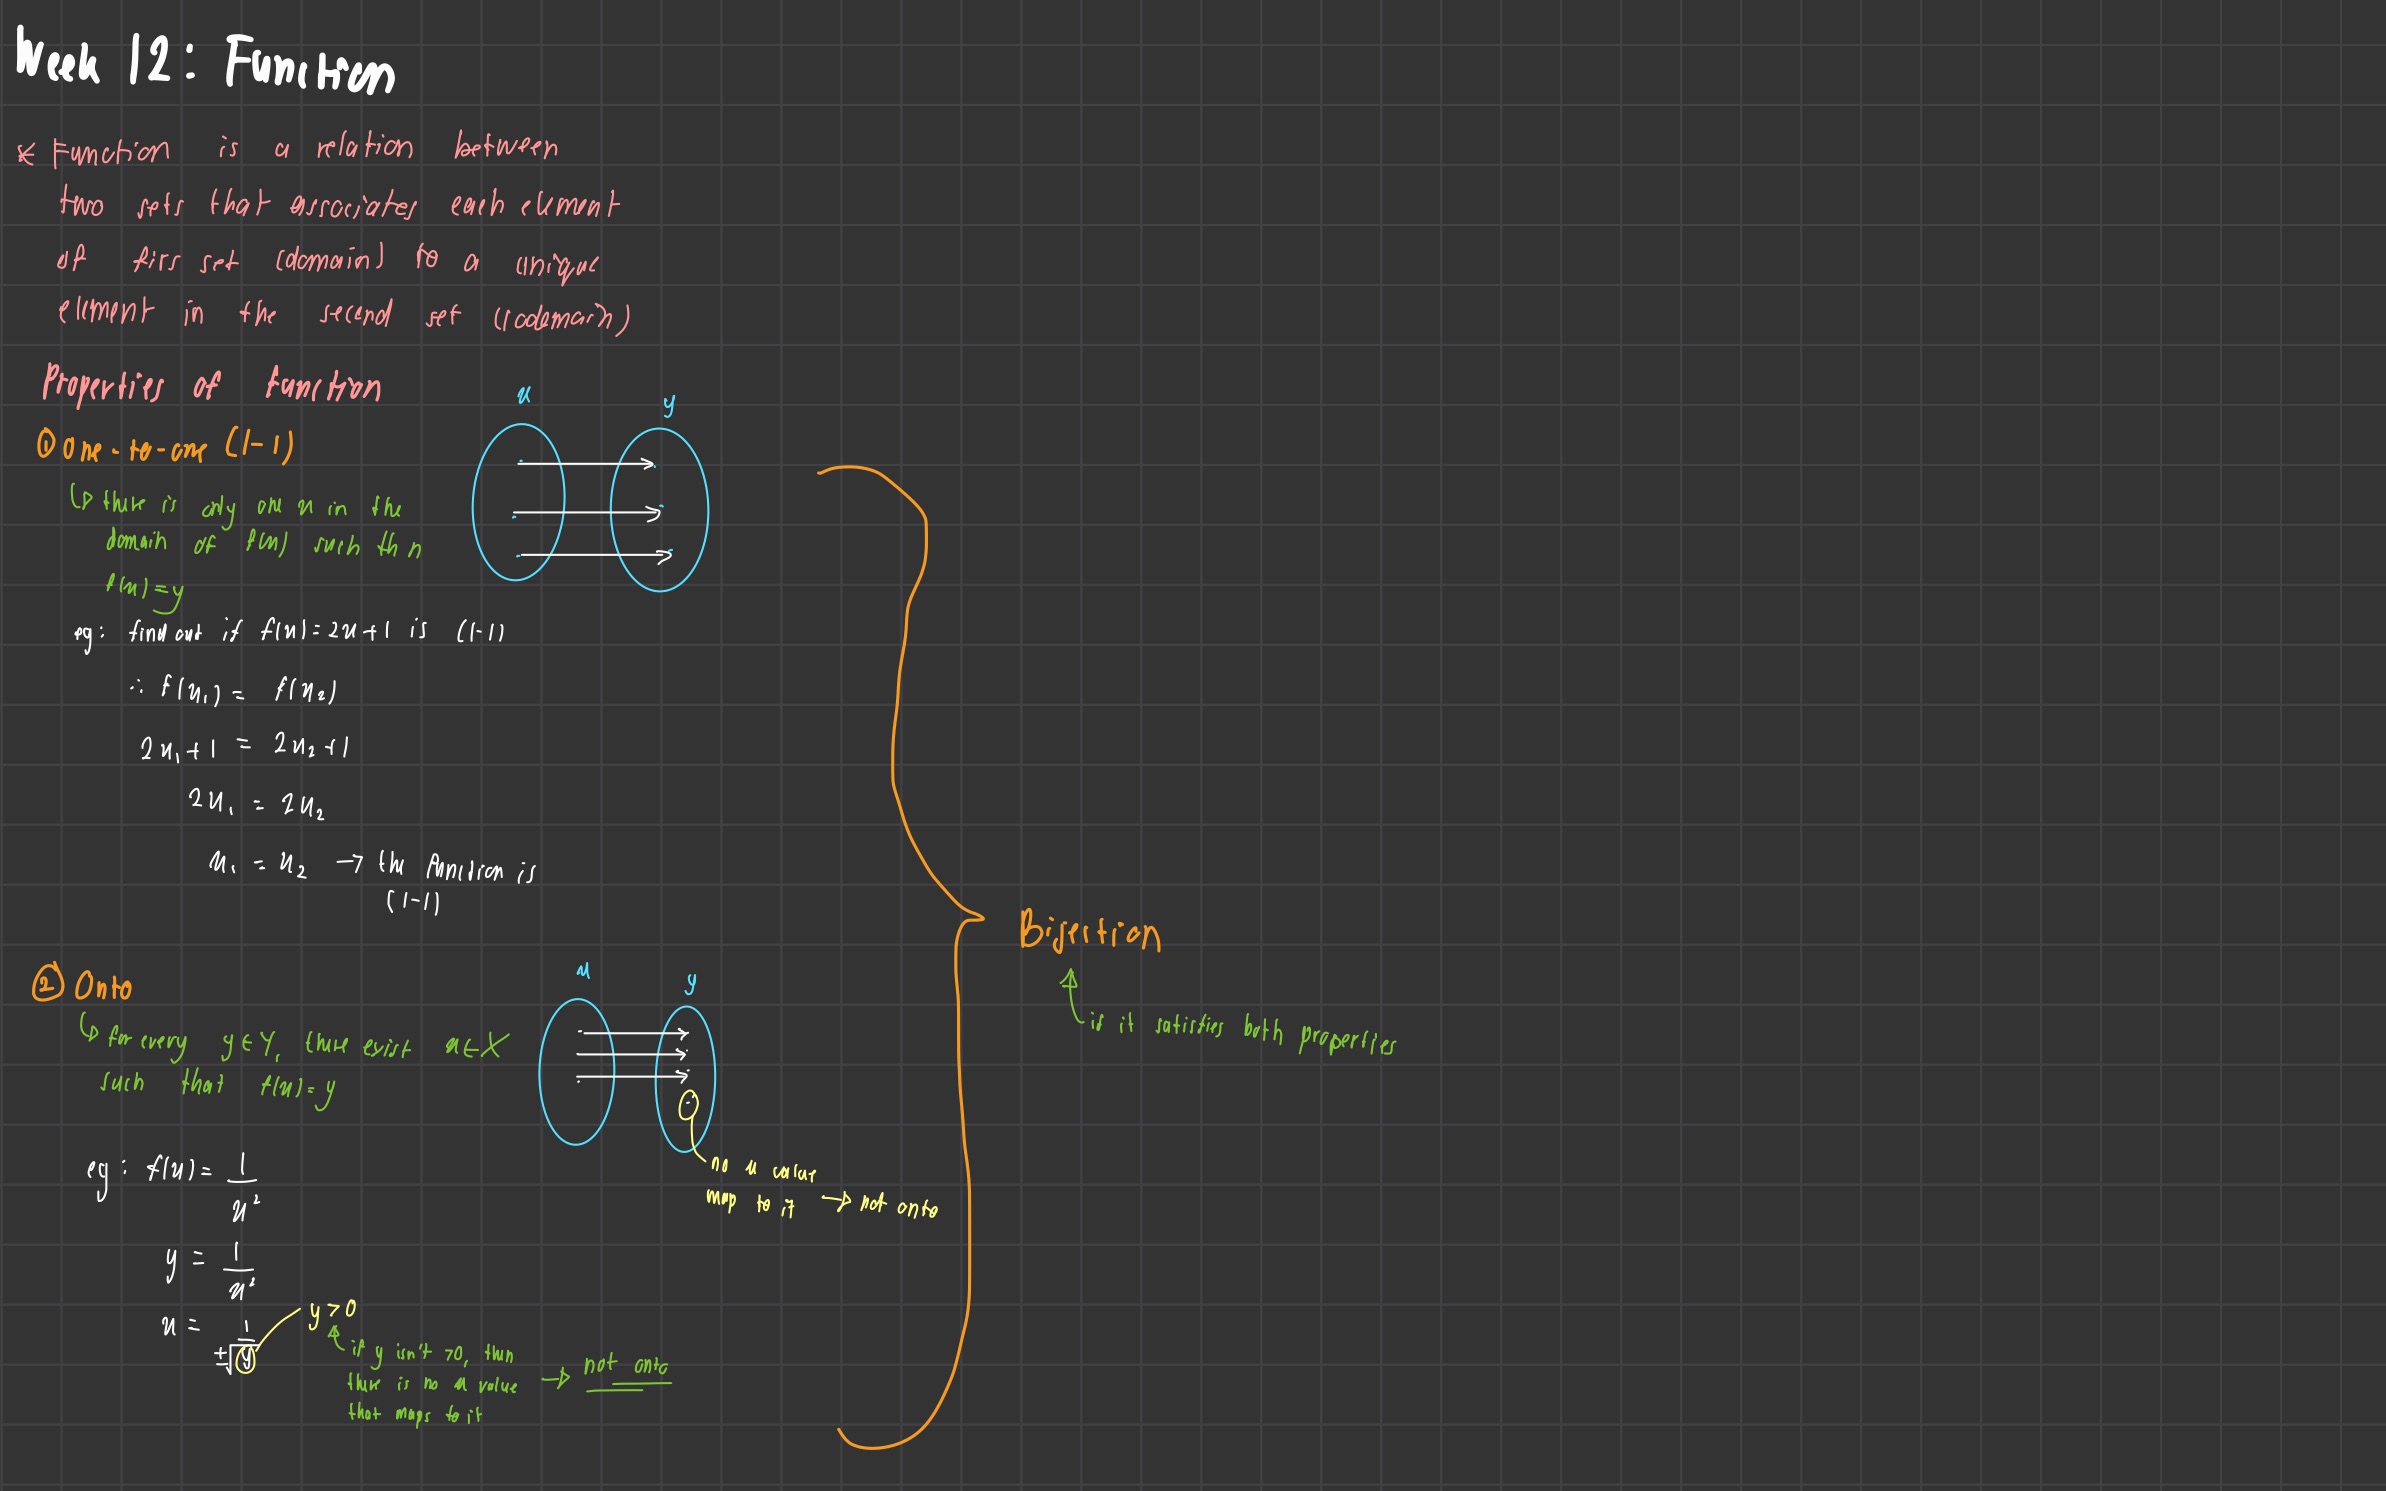 Week 12: Function
* Function is a relation between
two sets that associates each element
of firs set (domain) to a unique
element in the second set (codomain)
Properties of function
① One-to-one (1-1)
↳ there is only one x in the
domain of f(x) such th n
f(x) = y
x
y
eg: find out if f(x) = 2x + 1 is (1-1)
∴ f(x₁) = f(x₂)
2x₁ + 1 = 2x₂ + 1
2x₁ = 2x₂
x₁ = x₂ → the function is
(1-1)
② Onto
↳ for every y ∈ Y, there exist x ∈ X
such that f(x) = y
x
y
no x value
map to it → not onto
eg: f(x) = 1/x²
y = 1/x²
x = 1/±√y
y > 0
if y isn't > 0, then
there is no x value → not onto
that maps to it
Bijection
if it satisfies both properties